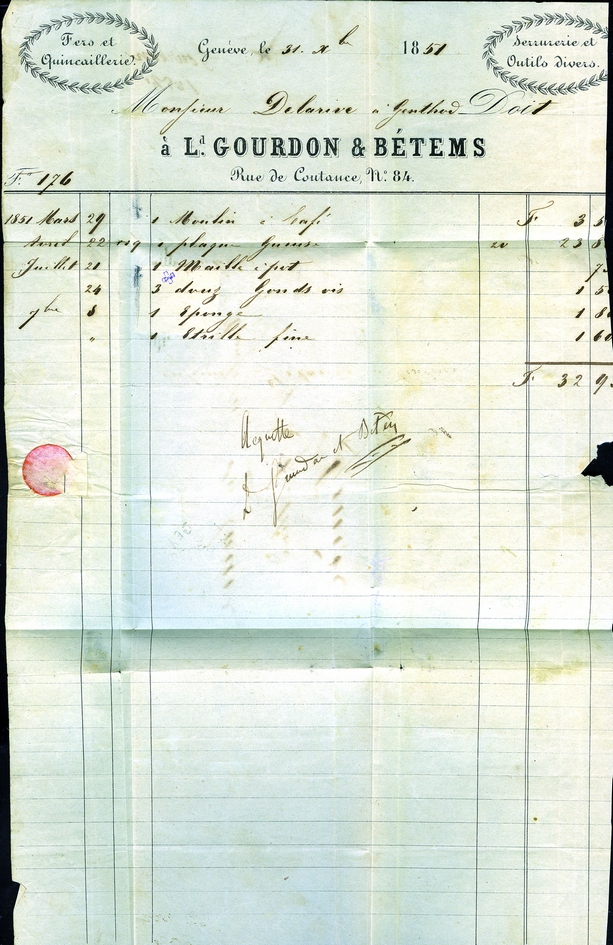 Fers et
Quincaillerie.
Genève, le 31. Xbre 1851
Serrurerie et
Outils divers.
Monsieur Delarive à Genthod Doit
à Ld. GOURDON & BÉTEMS
Rue de Coutance, No. 84.
Fo. 176
1851 Mars 29 1 Moulin à Café F 3 5
Avril 22 1 plaque Gueuse 20 23 8
Juillet 21 1 Maille à pot 7
24 3 douz Gonds vis 1 5
7bre 8 1 Eponge 1 80
" 1 Etrille fine 1 60
F. 32 9
Acquitté
Ld Gourdon et Bétems